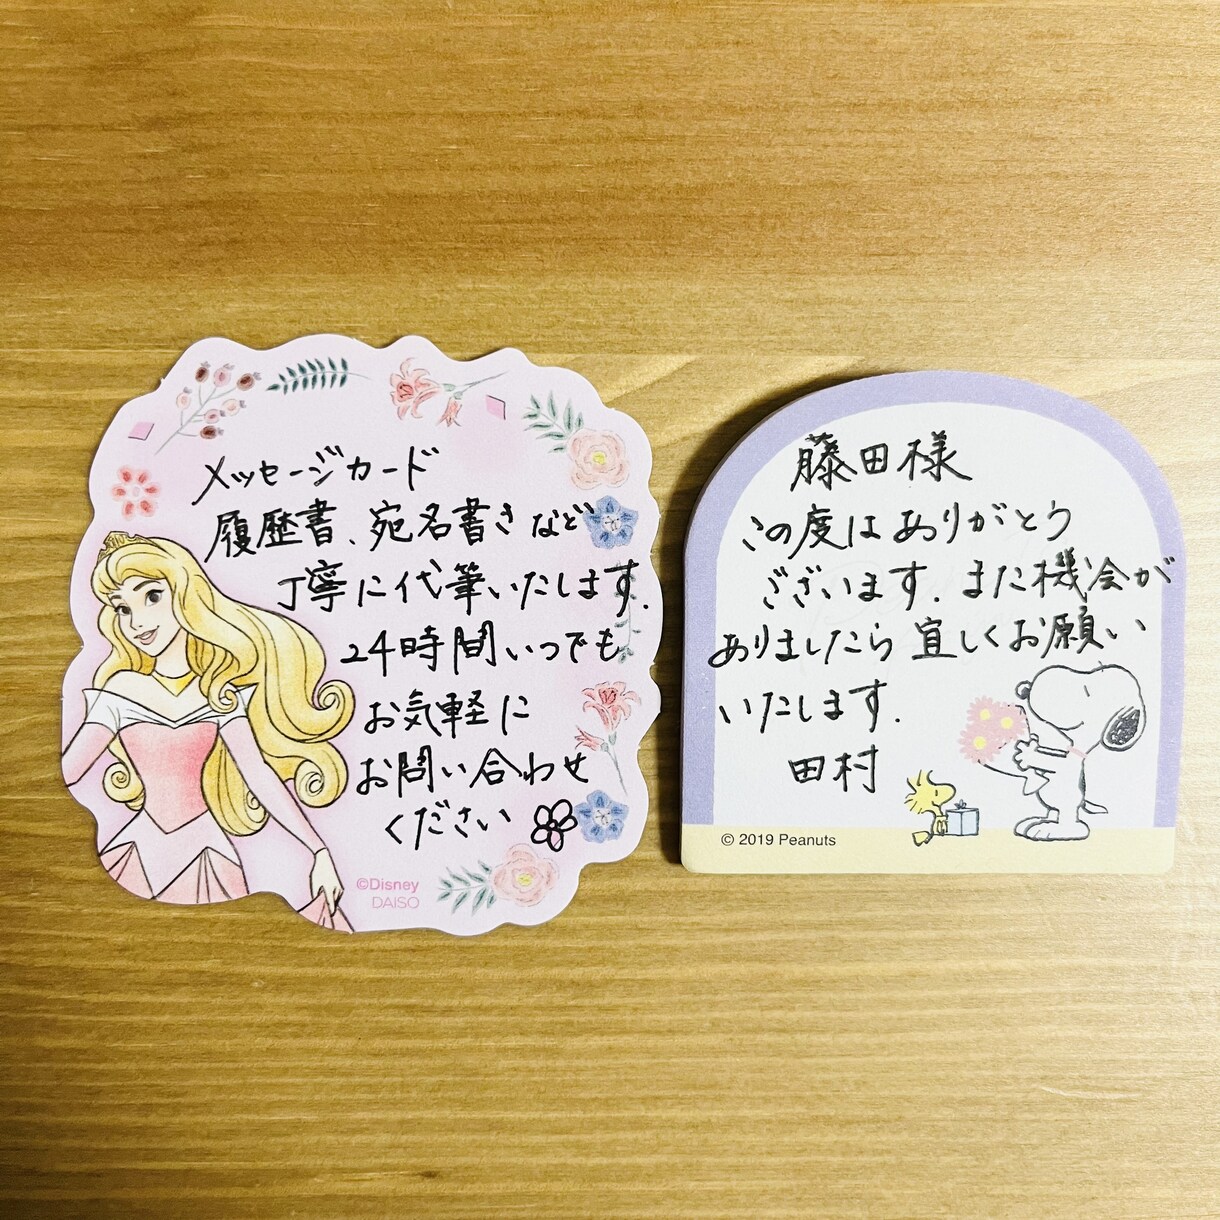 メッセージカード
履歴書、宛名書きなど
丁寧に代筆いたします.
24時間いつでも
お気軽に
お問い合わせ
ください
©Disney
DAISO
藤田様
この度はありがとう
ございます. また機会が
ありましたら宜しくお願い
いたします.
田村
© 2019 Peanuts